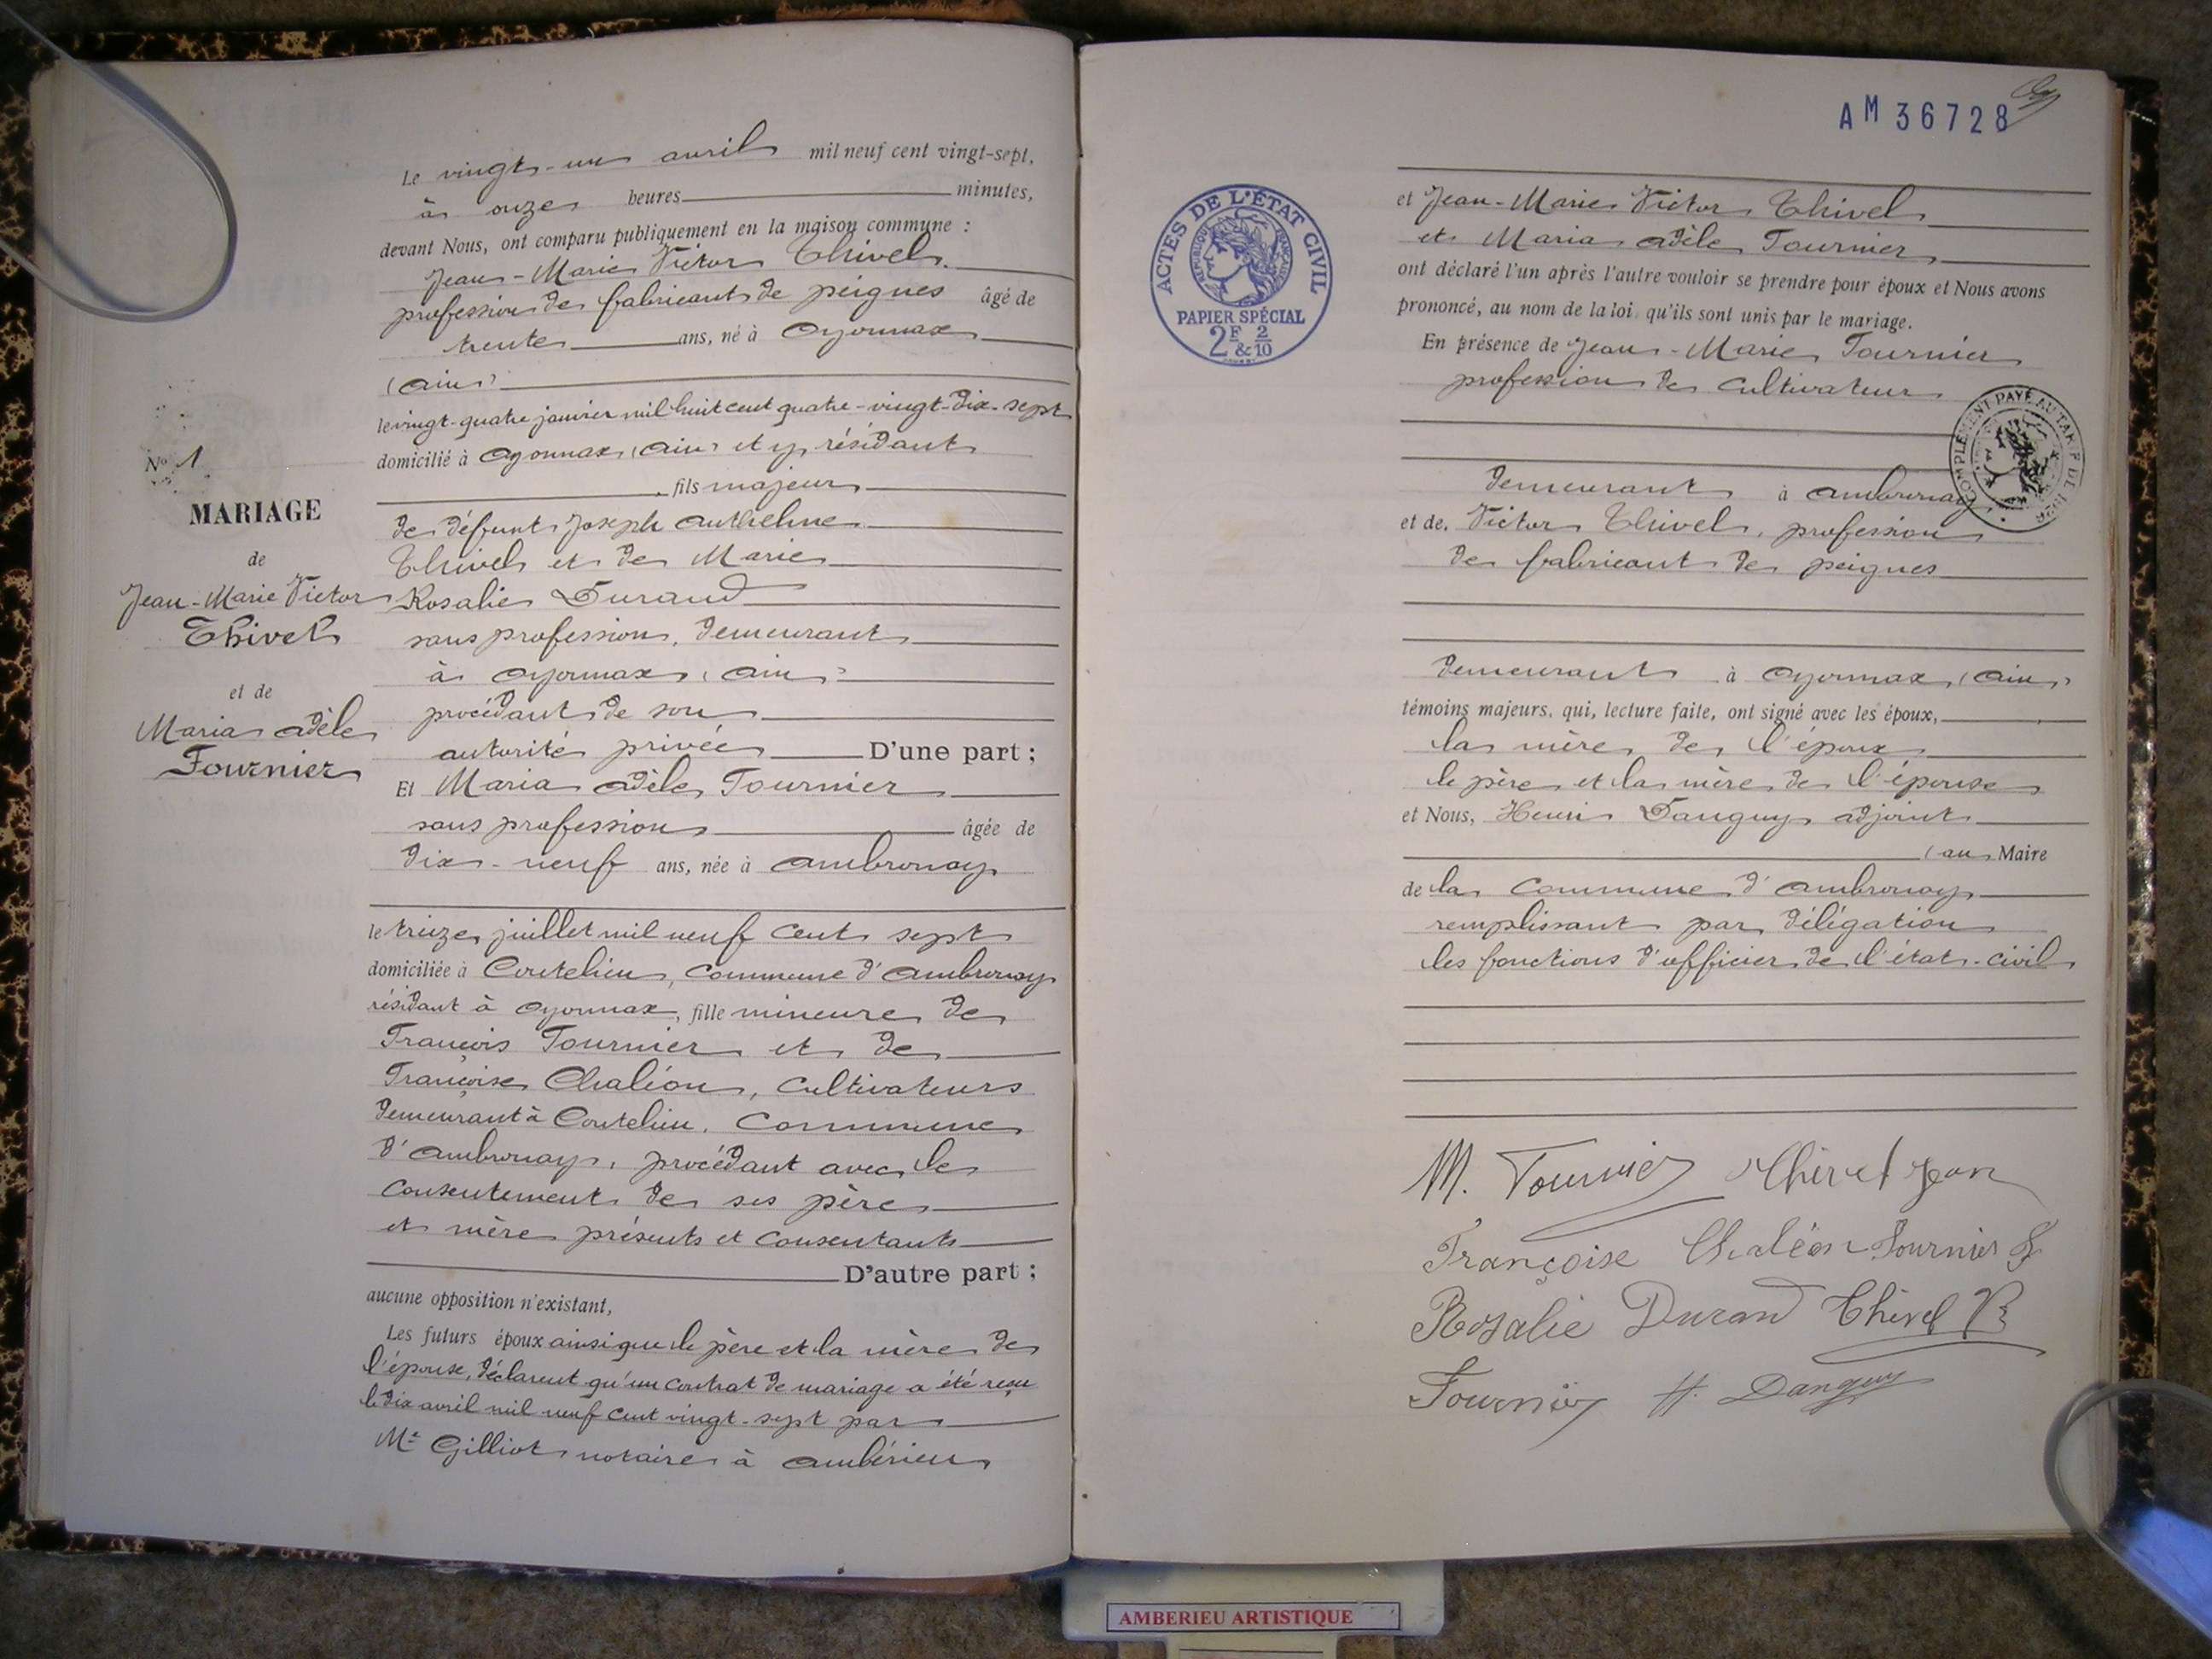 Le vingt-un avril mil neuf cent vingt-sept,
à onze heures minutes,
devant Nous, ont comparu publiquement en la maison commune :
Jean-Marie Victor Thivel
profession de fabricant de peignes âgé de
trente ans, né à Oyonnax
(Ain)
le vingt-quatre janvier mil huit cent quatre-vingt-dix-sept
domicilié à Oyonnax (Ain) et y résidant
fils majeur
de défunt Joseph Anthelme
Thivel et de Marie
Rosalie Durand
sans profession, demeurant
à Oyonnax (Ain)
procédant de son
autorité privée D'une part ;
Et Maria Adèle Fournier
sans profession âgée de
dix-neuf ans, née à Ambronay
le treize juillet mil neuf cent sept
domiciliée à Coutelieu, commune d'Ambronay
résidant à Oyonnax, fille mineure de
François Fournier et de
Françoise Chaléon, cultivateurs
demeurant à Coutelieu, commune
d'Ambronay, procédant avec le
consentement de ses père
et mère présents et consentants
D'autre part ;
aucune opposition n'existant,
Les futurs époux ainsi que le père et la mère de
l'épouse, déclarent qu'un contrat de mariage a été reçu
le dix avril mil neuf cent vingt-sept par
Me Gilliot notaire à Ambérieu
No 1
MARIAGE
de
Jean-Marie Victor
Thivel
et de
Maria Adèle
Fournier
AM 36728
ACTES DE L'ÉTAT CIVIL
RÉPUBLIQUE FRANÇAISE
PAPIER SPÉCIAL
2F & 2/10
et Jean-Marie Victor Thivel
et Maria Adèle Fournier
ont déclaré l'un après l'autre vouloir se prendre pour époux et Nous avons
prononcé, au nom de la loi, qu'ils sont unis par le mariage.
En présence de Jean-Marie Fournier
profession de cultivateur
COMPLÉMENT PAYÉ AU TARIF DE 1926
demeurant à Ambronay
et de Victor Thivel, profession
de fabricant de peignes
demeurant à Oyonnax (Ain)
témoins majeurs, qui, lecture faite, ont signé avec les époux,
la mère de l'époux
le père et la mère de l'épouse
et Nous, Henri Danguy adjoint
au Maire
de la commune d'Ambronay
remplissant par délégation
les fonctions d'officier de l'état-civil
M. Fournier Thivel Jean
Françoise Chaléon Fournier F
Rosalie Durand Thivel V
Fournier H. Danguy
AMBERIEU ARTISTIQUE